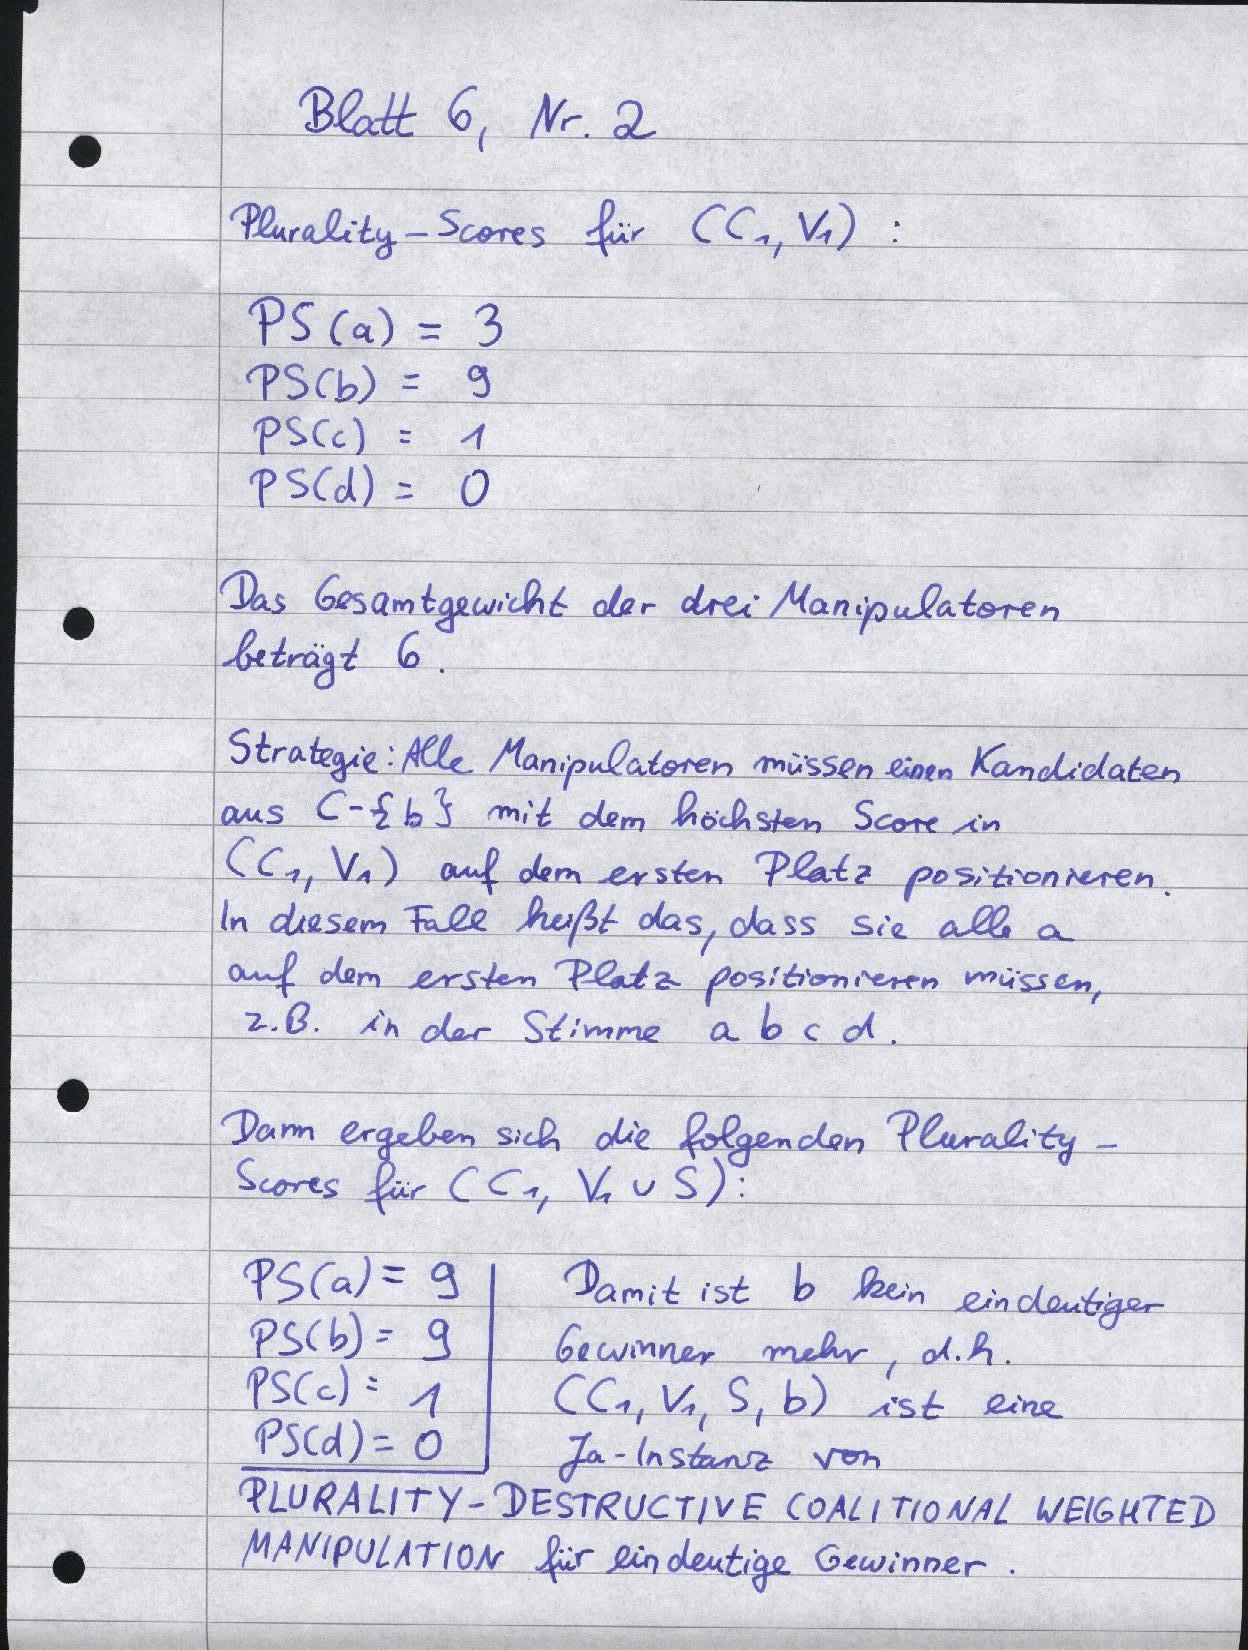 Blatt 6, Nr. 2
Plurality-Scores für (C1, V1) :
PS(a) = 3
PS(b) = 9
PS(c) = 1
PS(d) = 0
Das Gesamtgewicht der drei Manipulatoren
beträgt 6.
Strategie: Alle Manipulatoren müssen einen Kandidaten
aus C-{b} mit dem höchsten Score in
(C1, V1) auf dem ersten Platz positionieren.
In diesem Fall heißt das, dass sie alle a
auf dem ersten Platz positionieren müssen,
z.B. in der Stimme a b c d.
Dann ergeben sich die folgenden Plurality-
Scores für (C1, V1 ∪ S):
PS(a) = 9
PS(b) = 9
PS(c) = 1
PS(d) = 0
Damit ist b kein eindeutiger
Gewinner mehr, d.h.
(C1, V1, S, b) ist eine
Ja-Instanz von
PLURALITY-DESTRUCTIVE COALITIONAL WEIGHTED
MANIPULATION für eindeutige Gewinner.